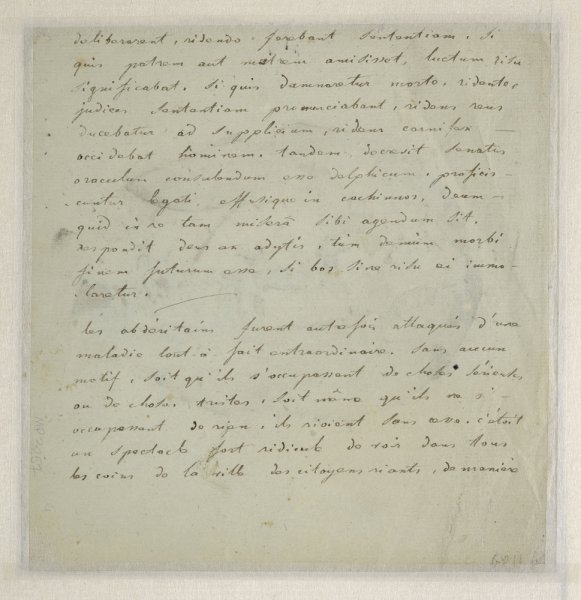 delibararent, ridendo ferebant sententiam. Si
quis patrem aut matrem amisisset, luctum risu
significabat. Si quis damnaretur morte, ridentes
judices sententiam pronunciabant, ridens reus
ducebatur ad supplicium, ridens carnifex —
occidebat hominem. tandem decrevit senatus
oraculum consulendum esse delphicum. proficis-
cuntur legati, effusique in cachinnos, deum —
quid in re tam miserâ sibi agendum sit.
respondit deus ex adytis, tum demùm morbi
finem futurum esse, si bos sine risu ei immo-
laretur.
les abdéritains furent autrefois attaqués d'une
maladie tout à fait extraordinaire. sans aucun
motif, soit qu'ils s'occupassent de choses sérieuses
ou de choses tristes, soit même qu'ils ne s'-
occupassent de rien, ils rioient sans cesse. c'étoit
un spectacle fort ridicule de voir dans tous
les coins de la ville des citoyens riants, de manière